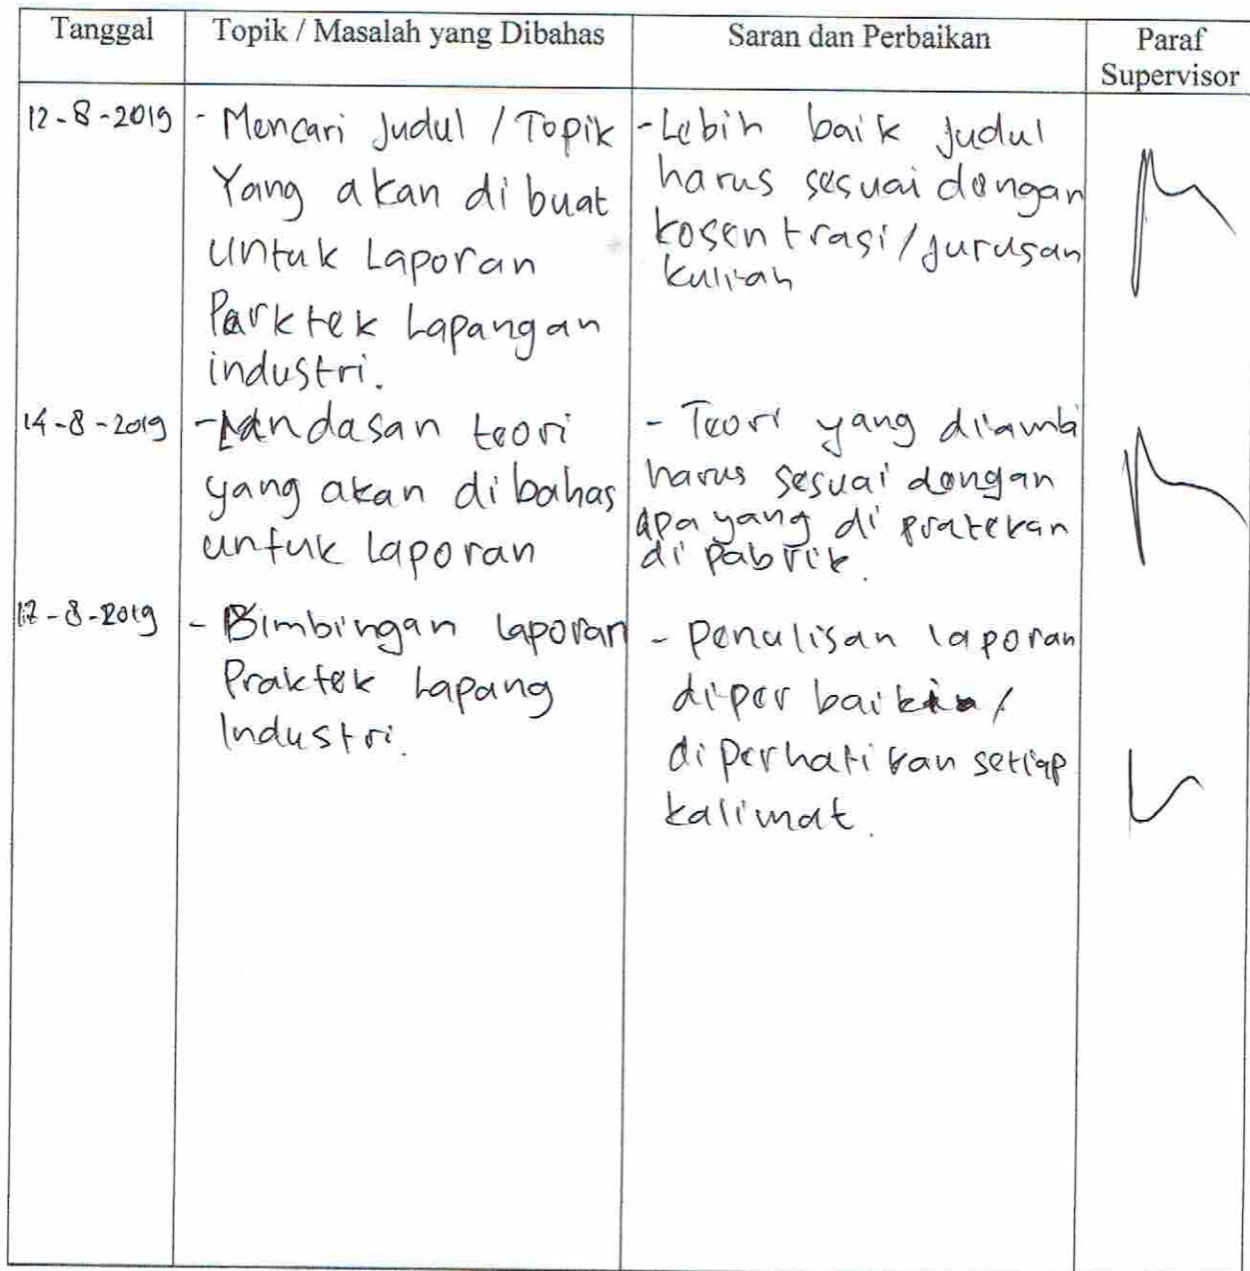 Tanggal
Topik / Masalah yang Dibahas
Saran dan Perbaikan
Paraf
Supervisor
12-8-2019
- Mencari Judul / Topik
Yang akan di buat
untuk Laporan
Parktek Lapangan
industri.
- Lebih baik judul
harus sesuai dengan
kosentrasi / jurusan
kuliah
14-8-2019
- Landasan teori
yang akan di bahas
untuk laporan
- Teori yang diambi
harus sesuai dengan
apa yang di pratekan
di pabrik.
-8-2019
- Bimbingan laporan
Praktek Lapang
Industri.
- Penulisan laporan
diper baiki /
di perhatikan setiap
kalimat.